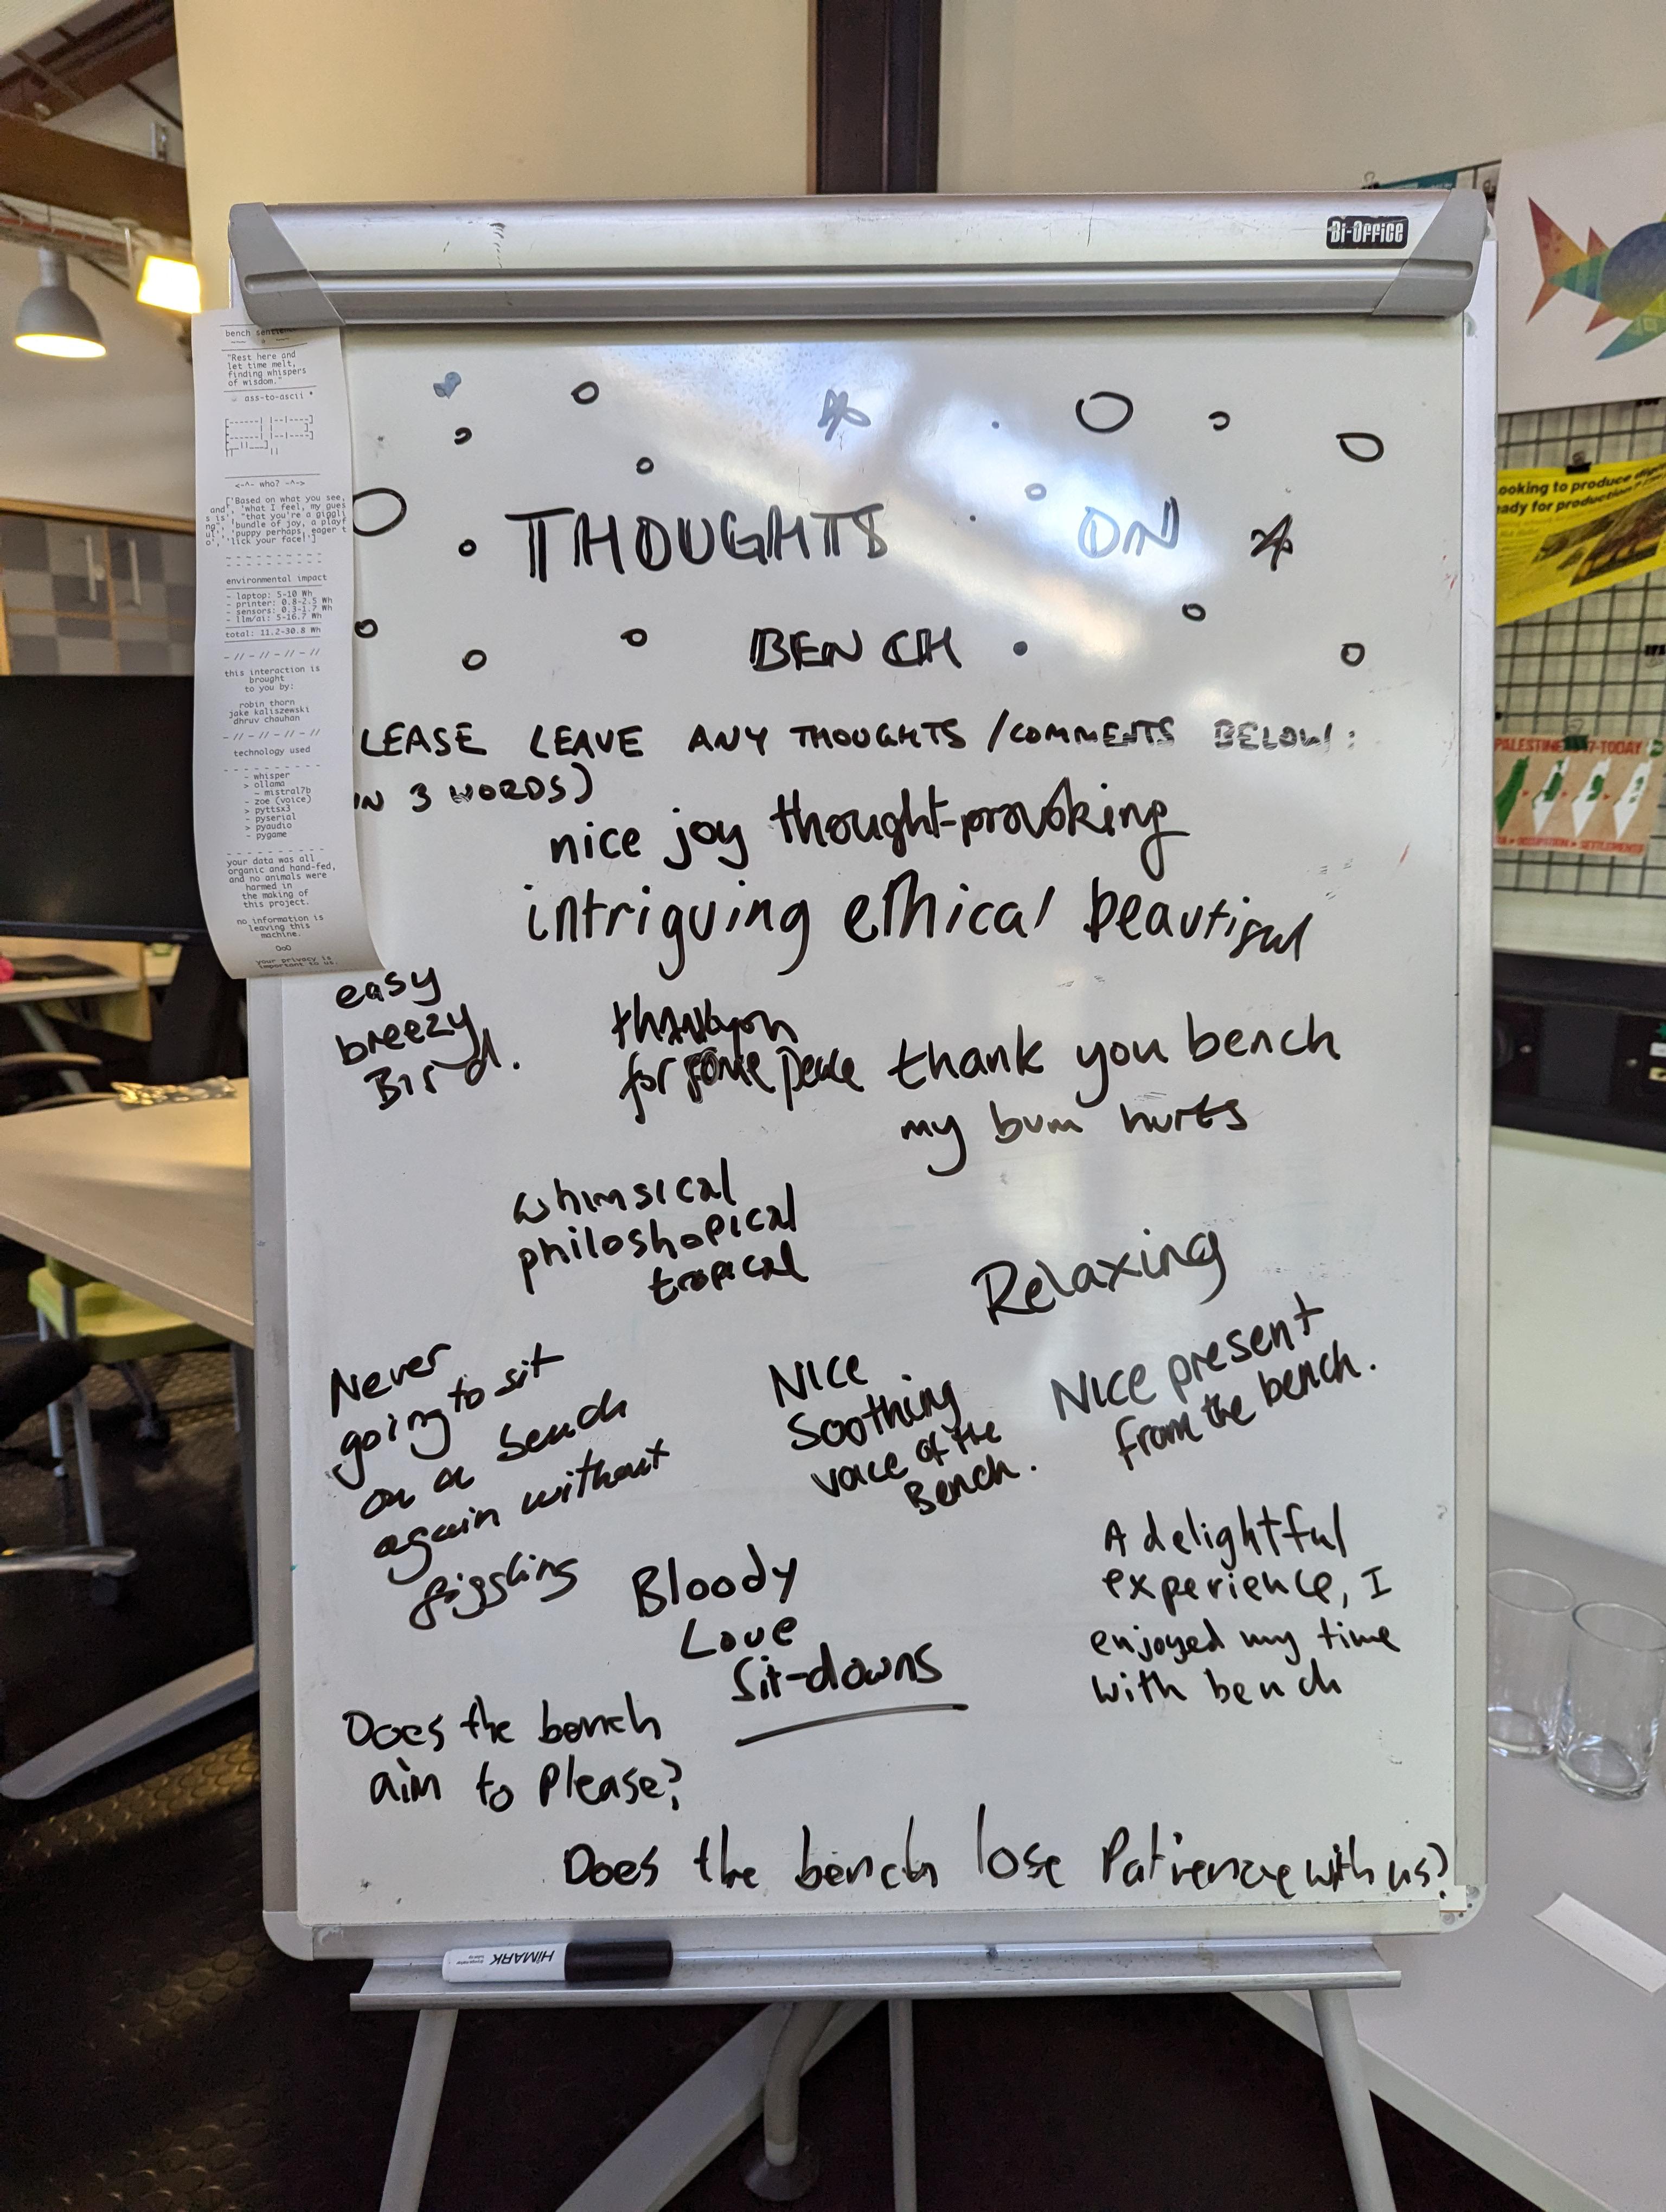 Bi-Office
bench
"Rest here and
let time melt,
finding whispers
of wisdom."
ass-to-ascii *
<-^- who? -^->
['Based on what you see,
and', 'what I feel, my gues
s is', "that you're a giggli
ng", 'bundle of joy, a playf
ul', 'puppy perhaps, eager t
o', 'lick your face!']
environmental impact
- laptop: 5-10 Wh
- printer: 0.8-2.5 Wh
- sensors: 0.3-1.7 Wh
- llm/ai: 5-16.7 Wh
total: 11.2-30.8 Wh
- // - // - // - //
this interaction is
brought
to you by:
robin thorn
jake kaliszewski
dhruv chauhan
- // - // - // - //
technology used
- whisper
> ollama
- mistral7b
- zoe (voice)
> pyttsx3
- pyserial
> pyaudio
- pygame
your data was all
organic and hand-fed,
and no animals were
harmed in
the making of
this project.
no information is
leaving this
machine.
OoO
your privacy is
important to us.
THOUGHTS ON
BENCH
LEASE LEAVE ANY THOUGHTS / COMMENTS BELOW:
IN 3 WORDS)
nice joy thought-provoking
intriguing ethical beautiful
easy
breezy
Bird.
thankyou
for some peace
thank you bench
my bum hurts
whimsical
philoshopical
tropical
Relaxing
Never
going to sit
on a bench
again without
giggling
Nice
Soothing
voice of the
Bench.
Nice present
from the bench.
Bloody
Love
Sit-downs
A delightful
experience, I
enjoyed my time
with bench
Does the bench
aim to please?
Does the bench lose Patience with us?
HiMARK
ooking to produce
ady for production
PALESTINE 7-TODAY
OCCUPATION SETTLEMENTS